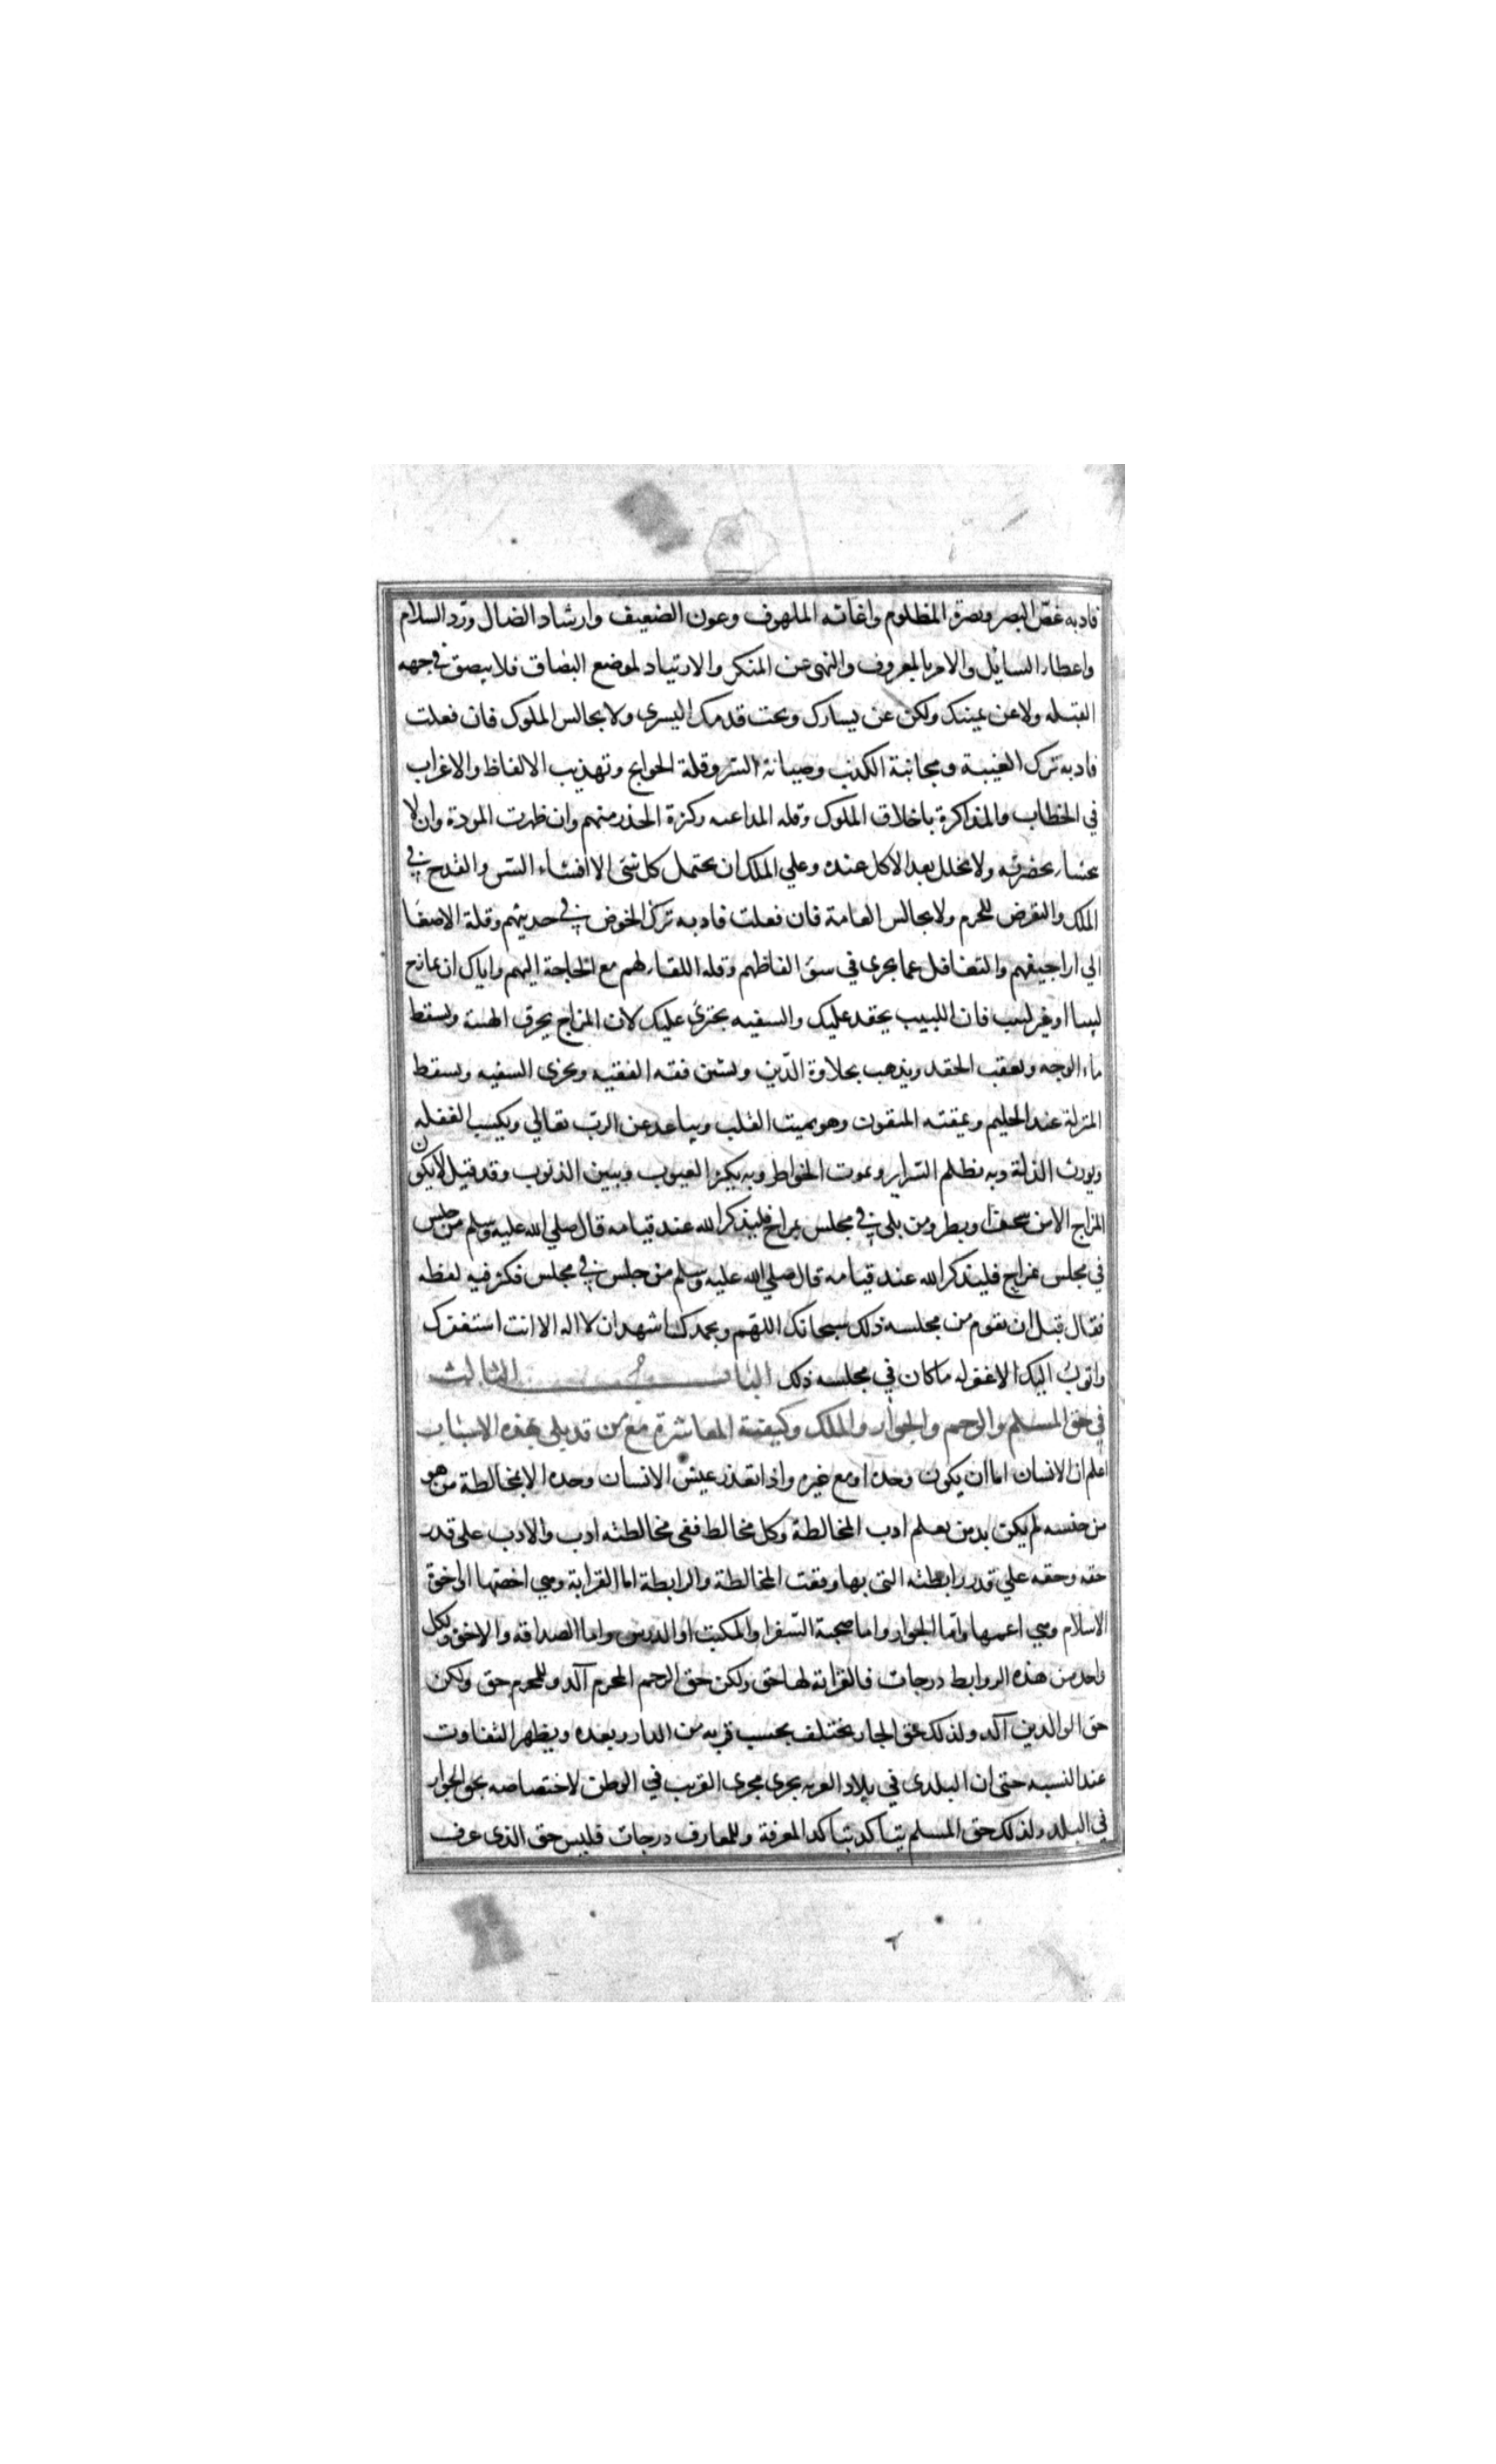 فادبه غضّ البصر ونصرة المظلوم واغاثه الملهوف وعون الضعيف وارشاد الضال وردّ السلام
واعطاء السايل والامر بالمعروف والنهى عن المنكر والارتياد لموضع البصاق فلا يبصق في جهه
القبله ولا عن يمينك ولكن عن يسارك وتحت قدمك اليسرى ولا تجالس الملوك فان فعلت
فادبه ترك الغيبة ومجانبة الكذب وصيانة السّر وقلة الحوايج وتهذيب الالفاظ والاعراب
في الخطاب والمذاكرة باخلاق الملوك وقله المداعبه وكثرة الحذر منهم وان ظهرت المودة وان لا
بحضرته ولا تخلل بعد الاكل عنده وعلي الملك ان يحتمل كل شئ الا افشاء السّر والقدح في
الملك والتعرض للحرم ولا تجالس العامة فان فعلت فادبه ترك الخوض في حديثهم وقلة الاصغا
الي اراجيفهم والتغافل عما يجرى في سؤ الفاظهم وقله اللقاء لهم مع الحاجة اليهم واياك ان تمازح
لبيبا او غير لبيب فان اللبيب يحقد عليك والسفيه يجترئ عليك لان المزاح يخرق الهيبه ويسقط
ماء الوجه ويعقب الحقد ويذهب بحلاوة الدّين ويشين فقه الفقيه ويجرى السفيه ويسقط
المنزلة عند الحليم ويمقته المتقون وهو يميت القلب ويباعد عن الرب تعالي ويكسب الغفله
ويورث الذلة وبه تظلم السّراير وتموت الخواطر وبه يكثر العيوب ويبين الذنوب وقد قيل لا يكون
المزاح الا من سخف او بطر ومن بلى في مجلس بمزاح فليذكر الله عند قيامه قال صلي الله عليه وسلم من جلس
في مجلس بمزاح فليذكر الله عند قيامه قال صلي الله عليه وسلم من جلس في مجلس فكثر فيه لغطه
فقال قبل ان يقوم من مجلسه ذلك سبحانك اللهم وبحمدك اشهد ان لا اله الا انت استغفرك
واتوب اليك الا غفر له ما كان في مجلسه ذلك الباب الثالث
في حق المسلم والرحم والجوار والملك وكيفية المعاشرة مع من قد يدلى بهذه الاسباب
اعلم ان الانسان اما ان يكون وحده او مع غيره واذا تعذر عيش الانسان وحده الا بمخالطة من هو
من جنسه لم يكن بد من تعلم ادب المخالطة وكل مخالط ففى مخالطته ادب والادب على قدر
حقه وحقه علي قدر رابطته التى بها وقعت المخالطة والرابطة اما القرابة وهي اخصّها او اخوة
الاسلام وهي اعمها واما الجوار واما صحبة السّفر او المكتب او الدرس واما الصداقة والاخوة ولكل
واحد من هذه الروابط درجات فالقرابة لها حق ولكن حق الرحم المحرم آكد وللمحرم حق ولكن
حق الوالدين آكد ولذلك حق الجار يختلف بحسب قربه من الدار وبعده ويظهر التفاوت
عند النسبه حتى ان البلدى في بلاد الغربه يجرى مجرى القريب في الوطن لاختصاصه بحق الجوار
في البلد ولذلك حق المسلم يتاكد بتاكد المعرفة وللمعارف درجات فليس حق الذى عرف